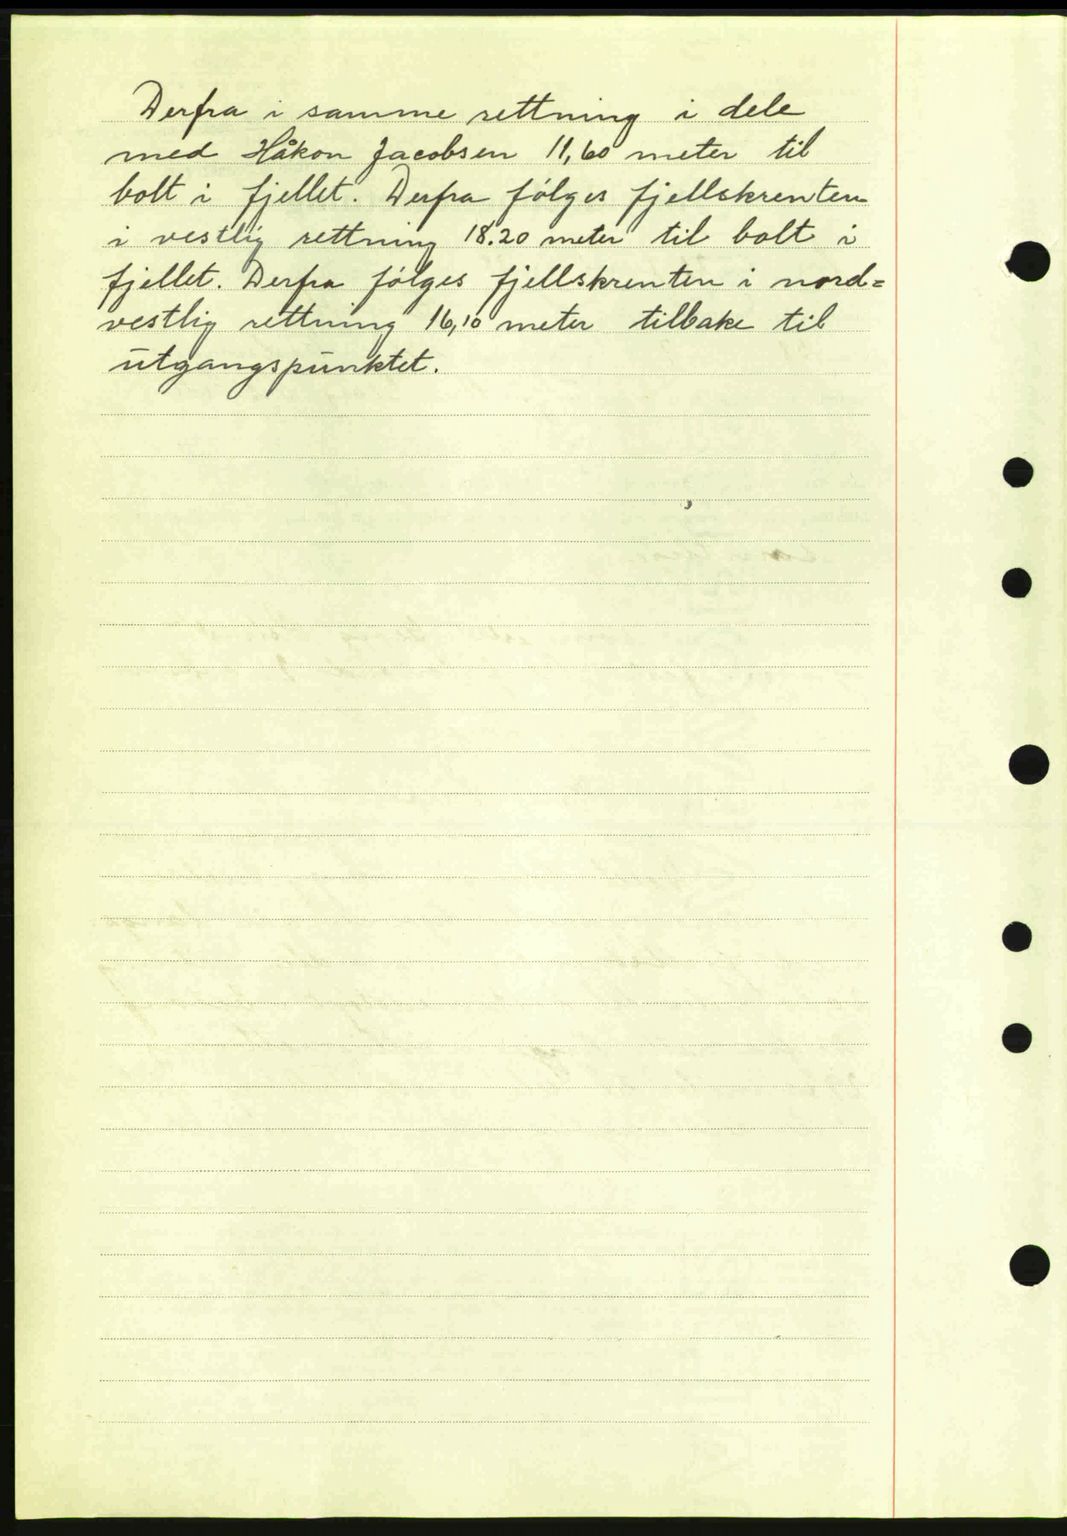 Derfra i samme rettning i dele
med Håkon Jacobsen 11,60 meter til
bolt i fjellet. Derfra følges fjellskrenten
i vestlig rettning 18.20 meter til bolt i
fjellet. Derfra følges fjellskrenten i nord=
vestlig rettning 16,10 meter tilbake til
utgangspunktet.